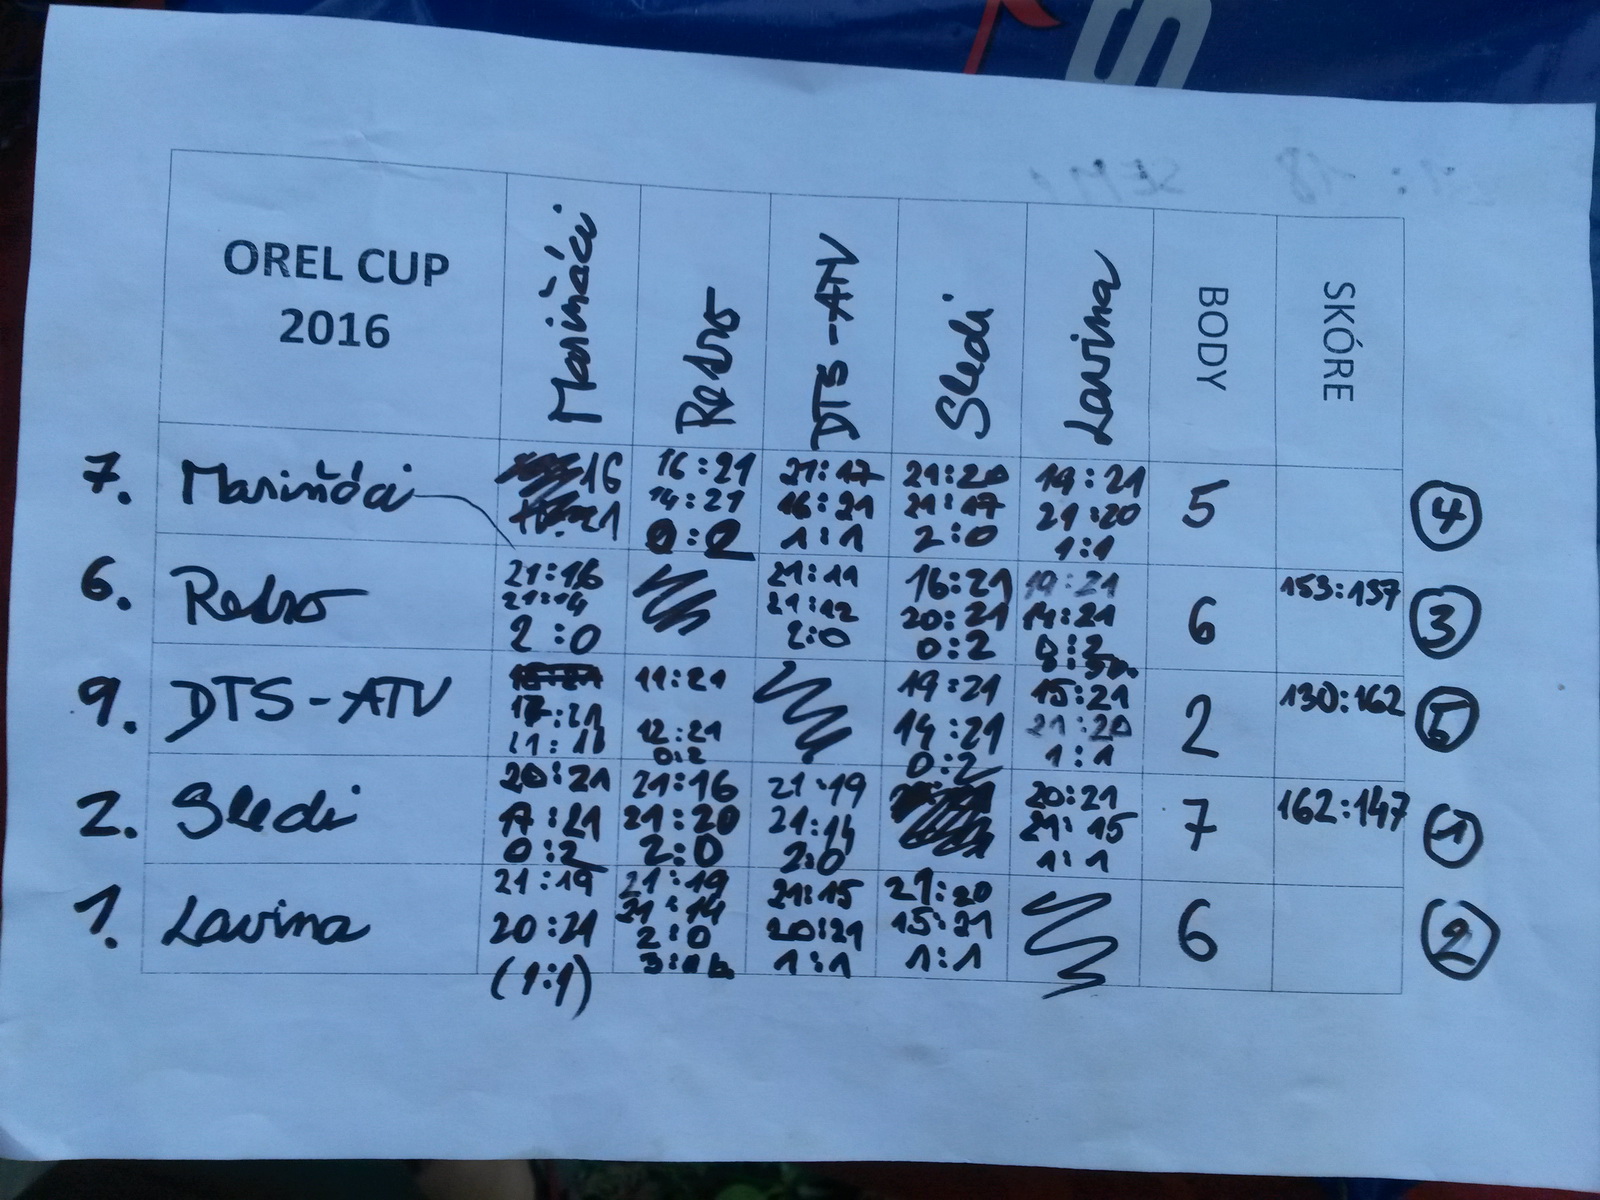 OREL CUP
2016
Mariňáci
Retro
DTS-ATV
Sledi
Lavina
BODY
SKÓRE
7. Mariňáci
16
21
16:21
14:21
0:2
21:17
16:21
1:1
21:20
21:17
2:0
19:21
21:20
1:1
5
4
6. Retro
21:16
21:14
2:0
21:11
21:12
2:0
16:21
20:21
0:2
19:21
14:21
0:2
6
153:137
3
9. DTS-ATV
17:21
11:21
12:21
0:2
19:21
14:21
0:2
15:21
21:20
1:1
2
130:162
5
2. Sledi
20:21
17:21
0:2
21:16
21:20
2:0
21:19
21:14
2:0
20:21
21:15
1:1
7
162:147
1
1. Lavina
21:19
20:21
(1:1)
21:19
21:14
2:0
21:15
20:21
1:1
21:20
15:21
1:1
6
2